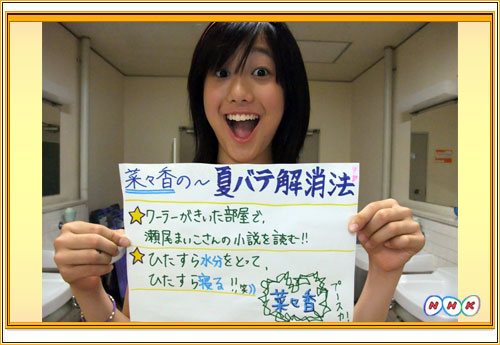 菜々香の〜夏バテ解消法
☆クーラーがきいた部屋で、
瀬尾まいこさんの小説を読む!!
☆ひたすら水分をとって、
ひたすら寝る!!(笑)
菜々香
NHK